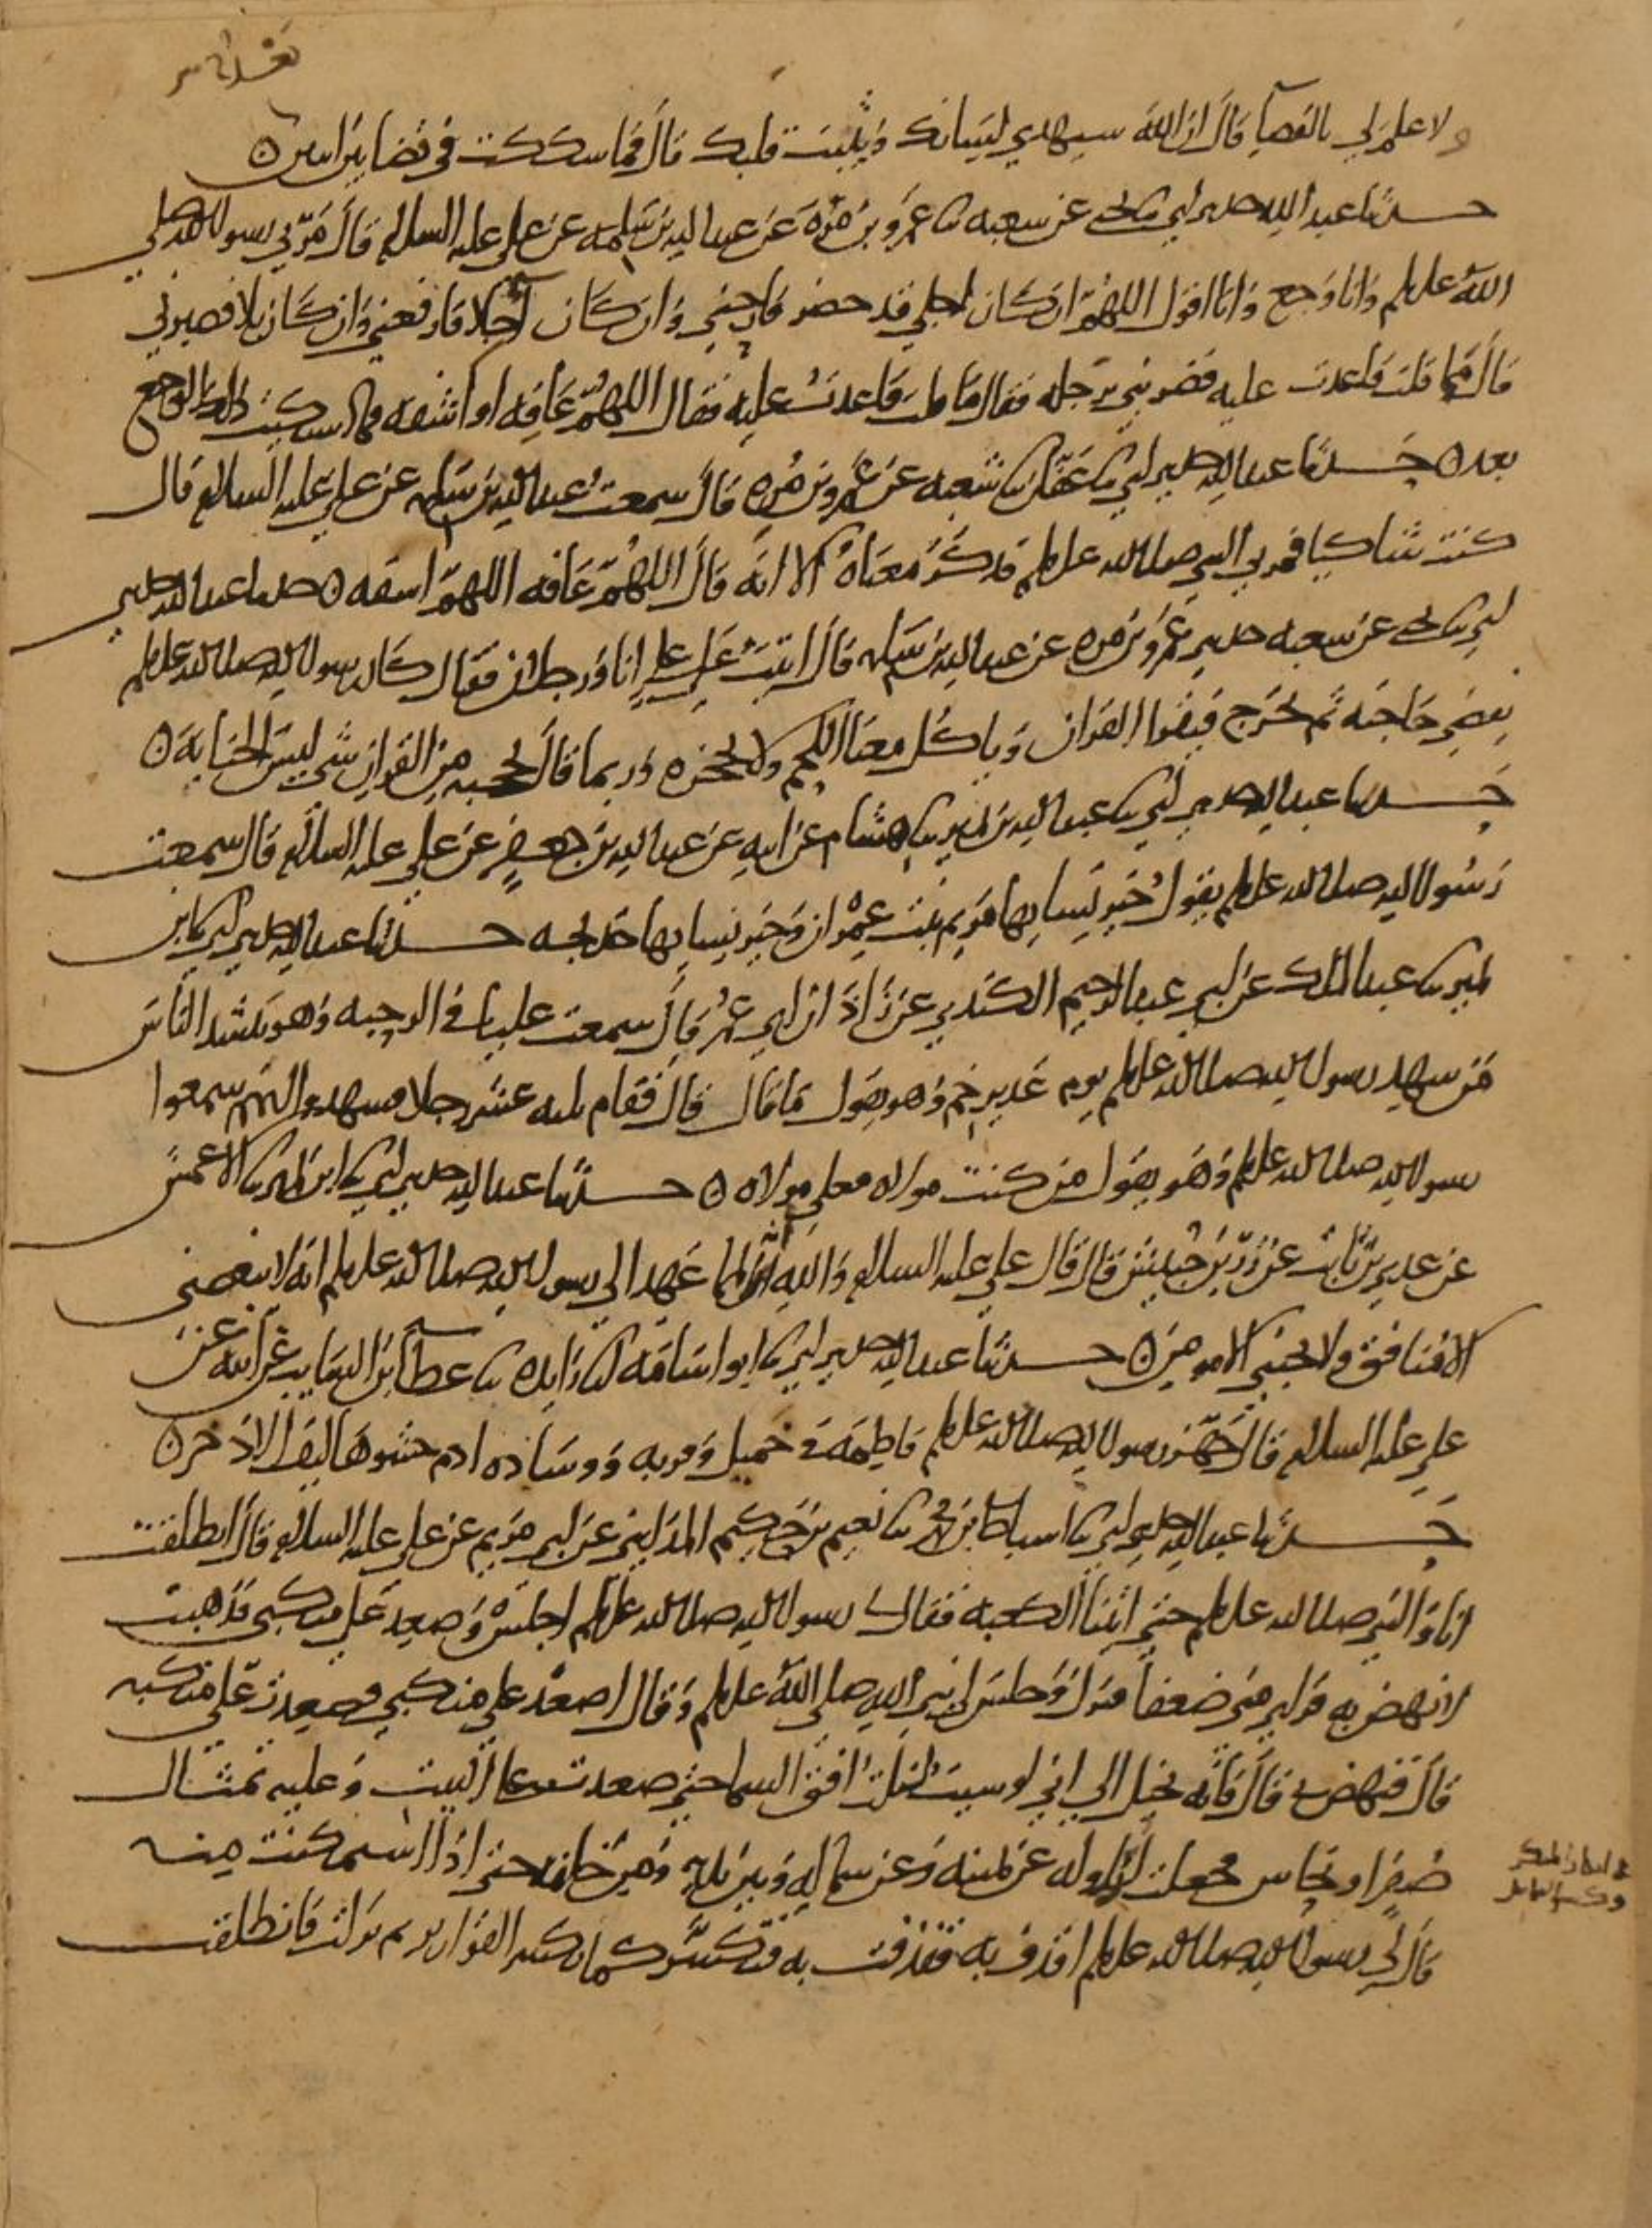 ولا علم لي بالقضا قال ان الله سيهدي لسانك ويثبت قلبك قال فما شككت في قضا بين اثنين
حدثنا عبد الله حدثني ابي نا يحيى عن شعبه نا عمرو بن مره عن عبد الله بن سلمه عن علي عليه السلام قال مر بي رسول الله صلى
الله عليه وسلم وانا وجع وانا اقول اللهم ان كان اجلي قد حضر فارحني وان كان آجلا فارفعني وان كان بلا فصبرني
قال ما قلت فاعدت عليه فضربني برجله فقال ما قلت فاعدت عليه فقال اللهم عافه او اشفه فما اشتكيت ذلك الوجع
بعد حدثنا عبد الله حدثني ابي نا عفان نا شعبه عن عمرو بن مره قال سمعت عبد الله بن سلمه عن علي عليه السلام قال
كنت شاكيا فمر بي النبي صلى الله عليه وسلم فذكر معناه الا انه قال اللهم عافه اللهم اشفه حدثنا عبد الله حدثني
ابي نا يحيى عن شعبه حدثني عمرو بن مره عن عبد الله بن سلمه قال اتيت على علي انا ورجلان فقال كان رسول الله صلى الله عليه وسلم
يقضي حاجته ثم يخرج فيقرا القران وياكل معنا اللحم ولا يحجزه وربما قال يحجبه من القران شي ليس الجنابه
حدثنا عبد الله حدثني ابي نا عبد الله بن نمير نا هشام عن ابيه عن عبد الله بن جعفر عن علي عليه السلام قال سمعت
رسول الله صلى الله عليه وسلم يقول خير نسايها مريم بنت عمران وخير نسايها خديجه حدثنا عبد الله حدثني ابي نا ابن
نمير نا عبد الملك عن ابي عبد الرحيم الكندي عن زاذان ابي عمر قال سمعت عليا في الرحبه وهو ينشد الناس
من شهد رسول الله صلى الله عليه وسلم يوم غدير خم وهو يقول ما قال قال فقام ثلثه عشر رجلا فشهدوا انهم سمعوا
رسول الله صلى الله عليه وسلم وهو يقول من كنت مولاه فعلي مولاه حدثنا عبد الله حدثني ابي نا ابن نمير نا الاعمش
عن عدي بن ثابت عن زر بن حبيش قال قال علي عليه السلام والله انه لمما عهد الي رسول الله صلى الله عليه وسلم انه لا يبغضني
الا منافق ولا يحبني الا مومن حدثنا عبد الله حدثني ابي نا ابو اسامه انا زايده نا عطا بن السايب عن ابيه عن
علي عليه السلام قال جهز رسول الله صلى الله عليه وسلم فاطمه في خميل وقربه ووساده ادم حشوها ليف الاذخر
حدثنا عبد الله حدثني ابي نا اسباط بن محمد نا نعيم بن حكيم المدايني عن ابي مريم عن علي عليه السلام قال انطلقت
انا والنبي صلى الله عليه وسلم حتى اتينا الكعبه فقال لي رسول الله صلى الله عليه وسلم اجلس وصعد على منكبي فذهبت
لانهض به فراي مني ضعفا فنزل وجلس لي نبي الله صلى الله عليه وسلم وقال اصعد على منكبي فصعدت على منكبيه
قال فنهض بي قال فانه يخيل الي اني لو شيت لنلت افق السما حتى صعدت على البيت وعليه تمثال
صفر او نحاس فجعلت ازاوله عن يمينه وعن شماله وبين يديه ومن خلفه حتى اذا استمكنت منه
قال لي رسول الله صلى الله عليه وسلم اقذف به فقذفت به فتكسر كما تتكسر القوارير ثم نزلت فانطلقت